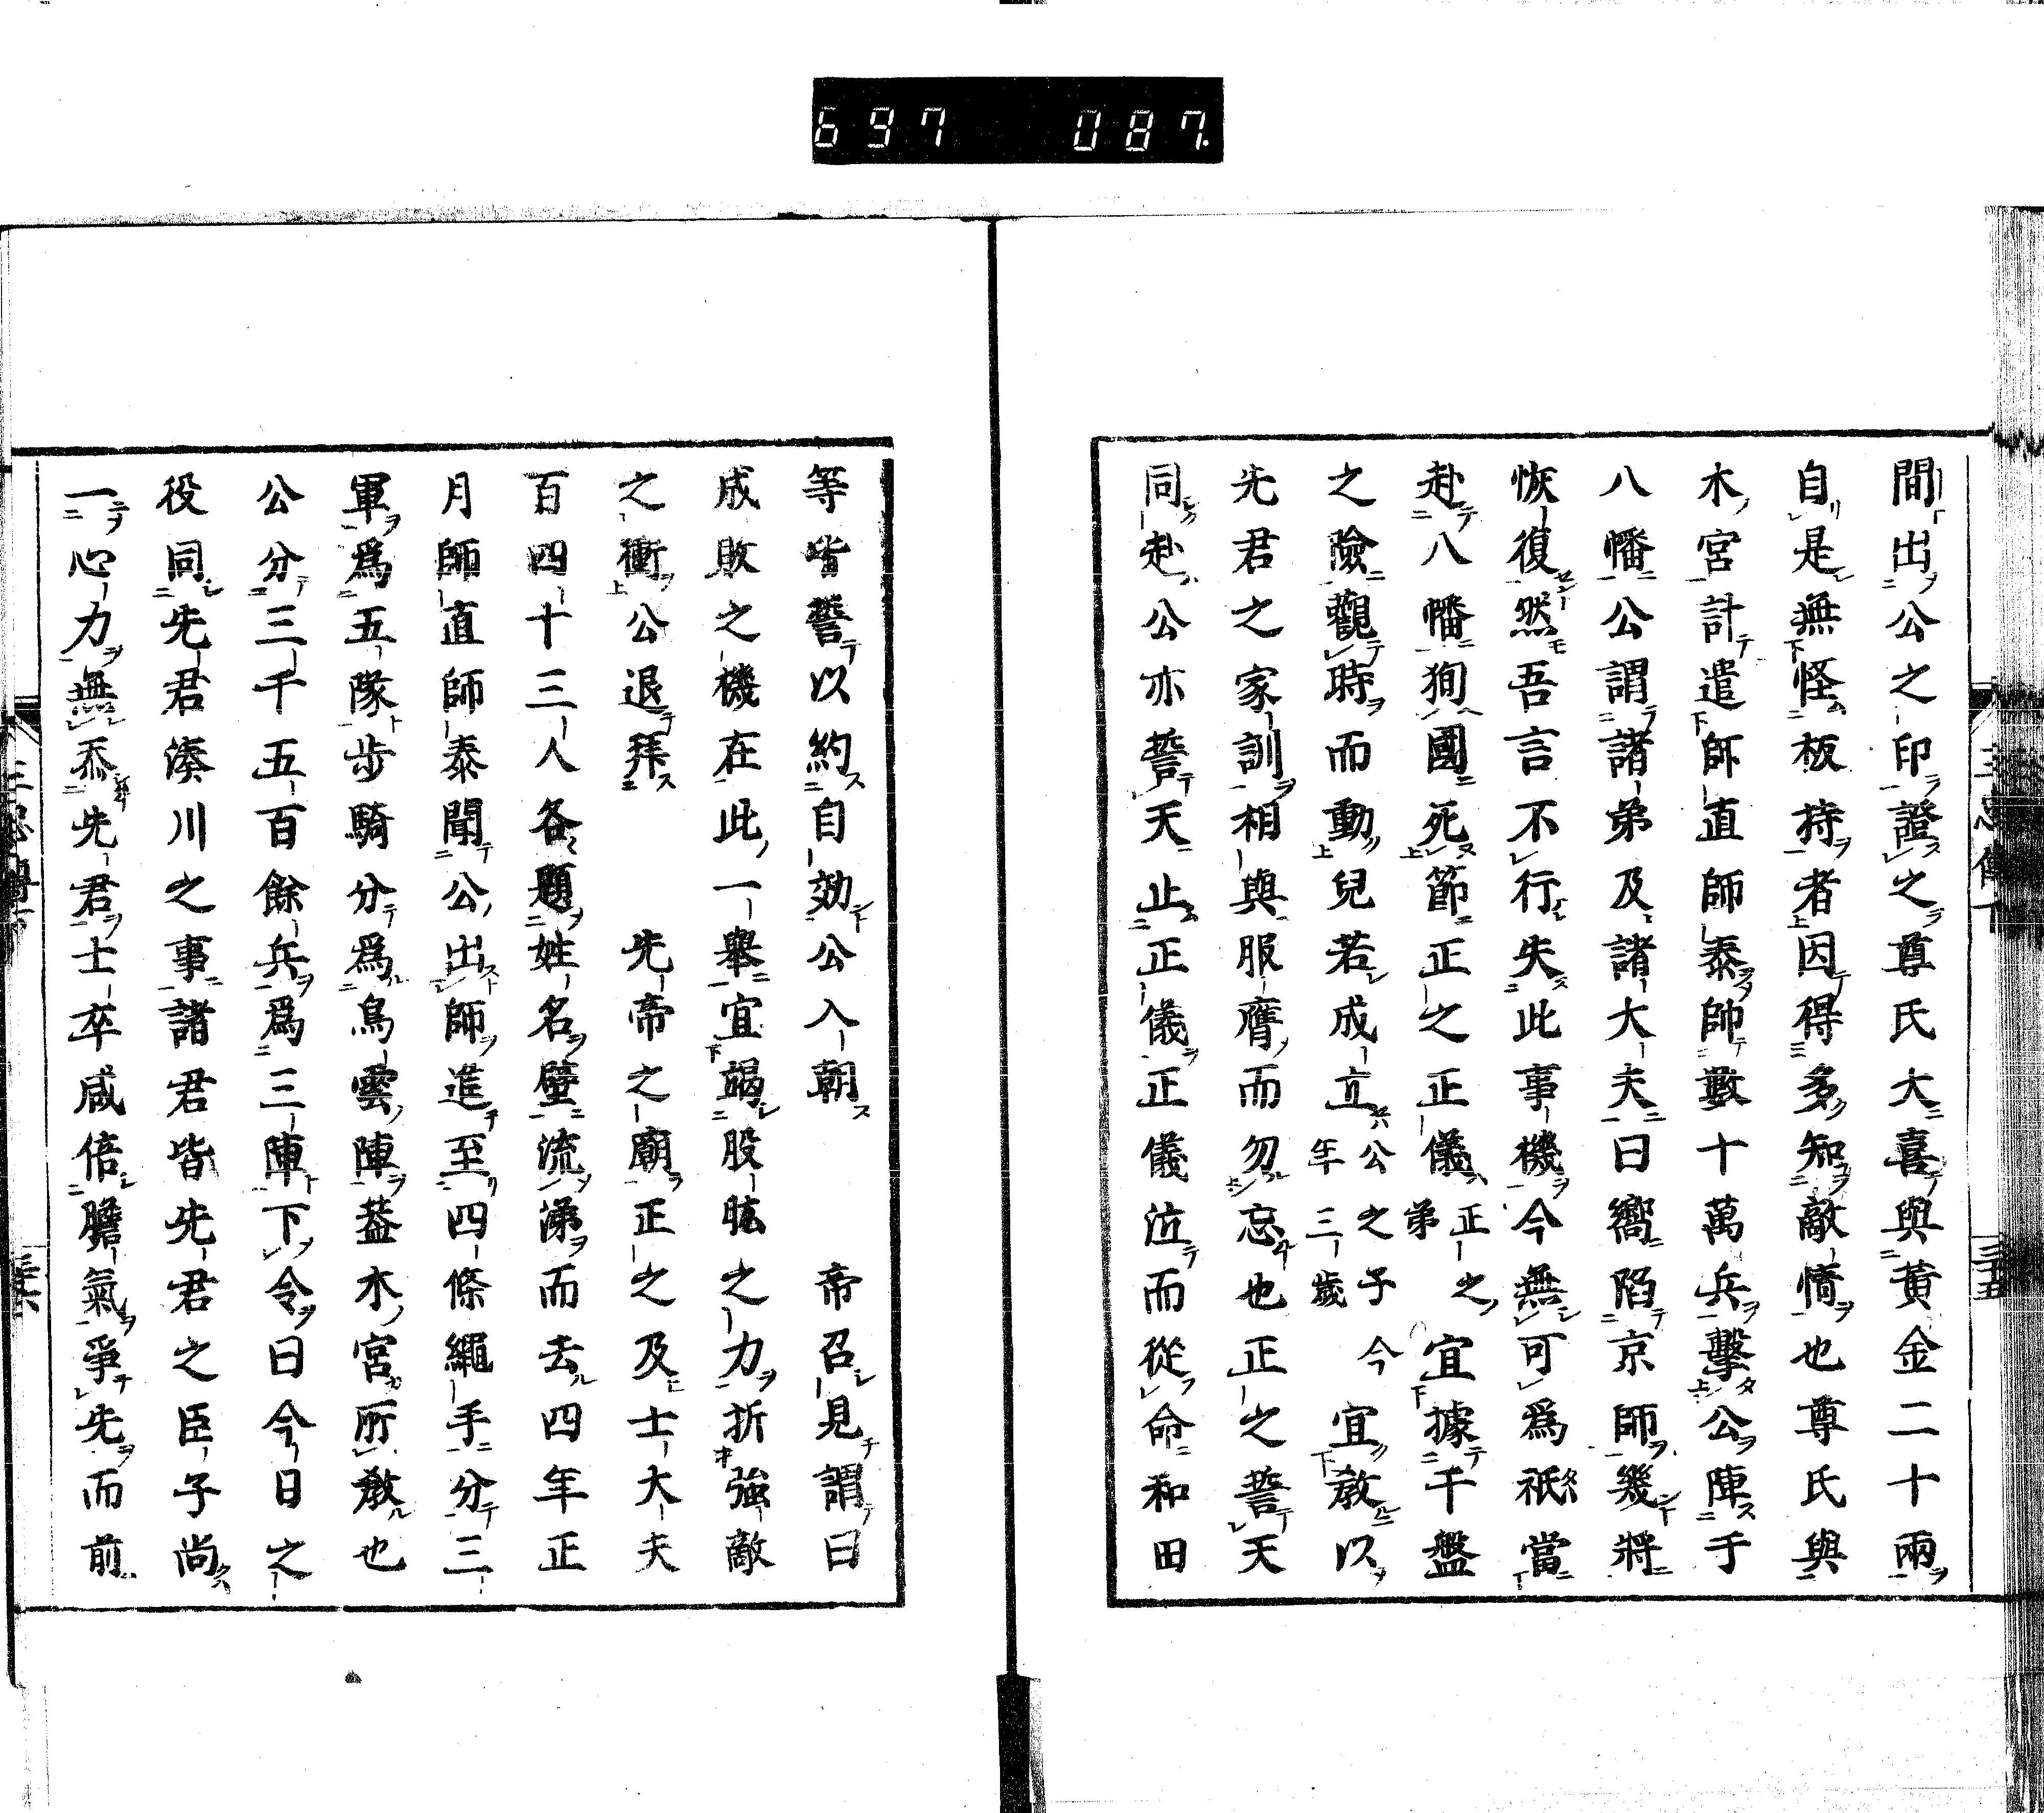 697 087.
間出公之印證之尊氏大喜與黃金二十兩
自是無怪板持者因得多知敵情也尊氏與
木宮計遣師直師泰帥數十萬兵擊公陣于
八幡公謂諸弟及諸大夫曰嚮陷京師幾將
恢復然吾言不行失此事機今無可爲祇當
赴八幡狥國死節正之正儀正之弟宜據千盤
之險觀時而動兒若成立公之子今年三歲宜教以
先君之家訓相與服膺而勿忘也正之誓天
同赴公亦誓天止正儀正儀泣而從命和田
等皆誓以約自効公入朝 帝召見謂曰
成敗之機在此一舉宜竭股肱之力折強敵
之衝公退拜 先帝之廟正之及士大夫
百四十三人各題姓名壁流涕而去四年正
月師直師泰聞公出師進至四條繩手分三
軍爲五隊步騎分爲鳥雲陣葢木宮所教也
公分三千五百餘兵爲三陣下令曰今日之
役同先君湊川之事諸君皆先君之臣子尚
一心力無忝先君士卒咸倍膽氣爭先而前